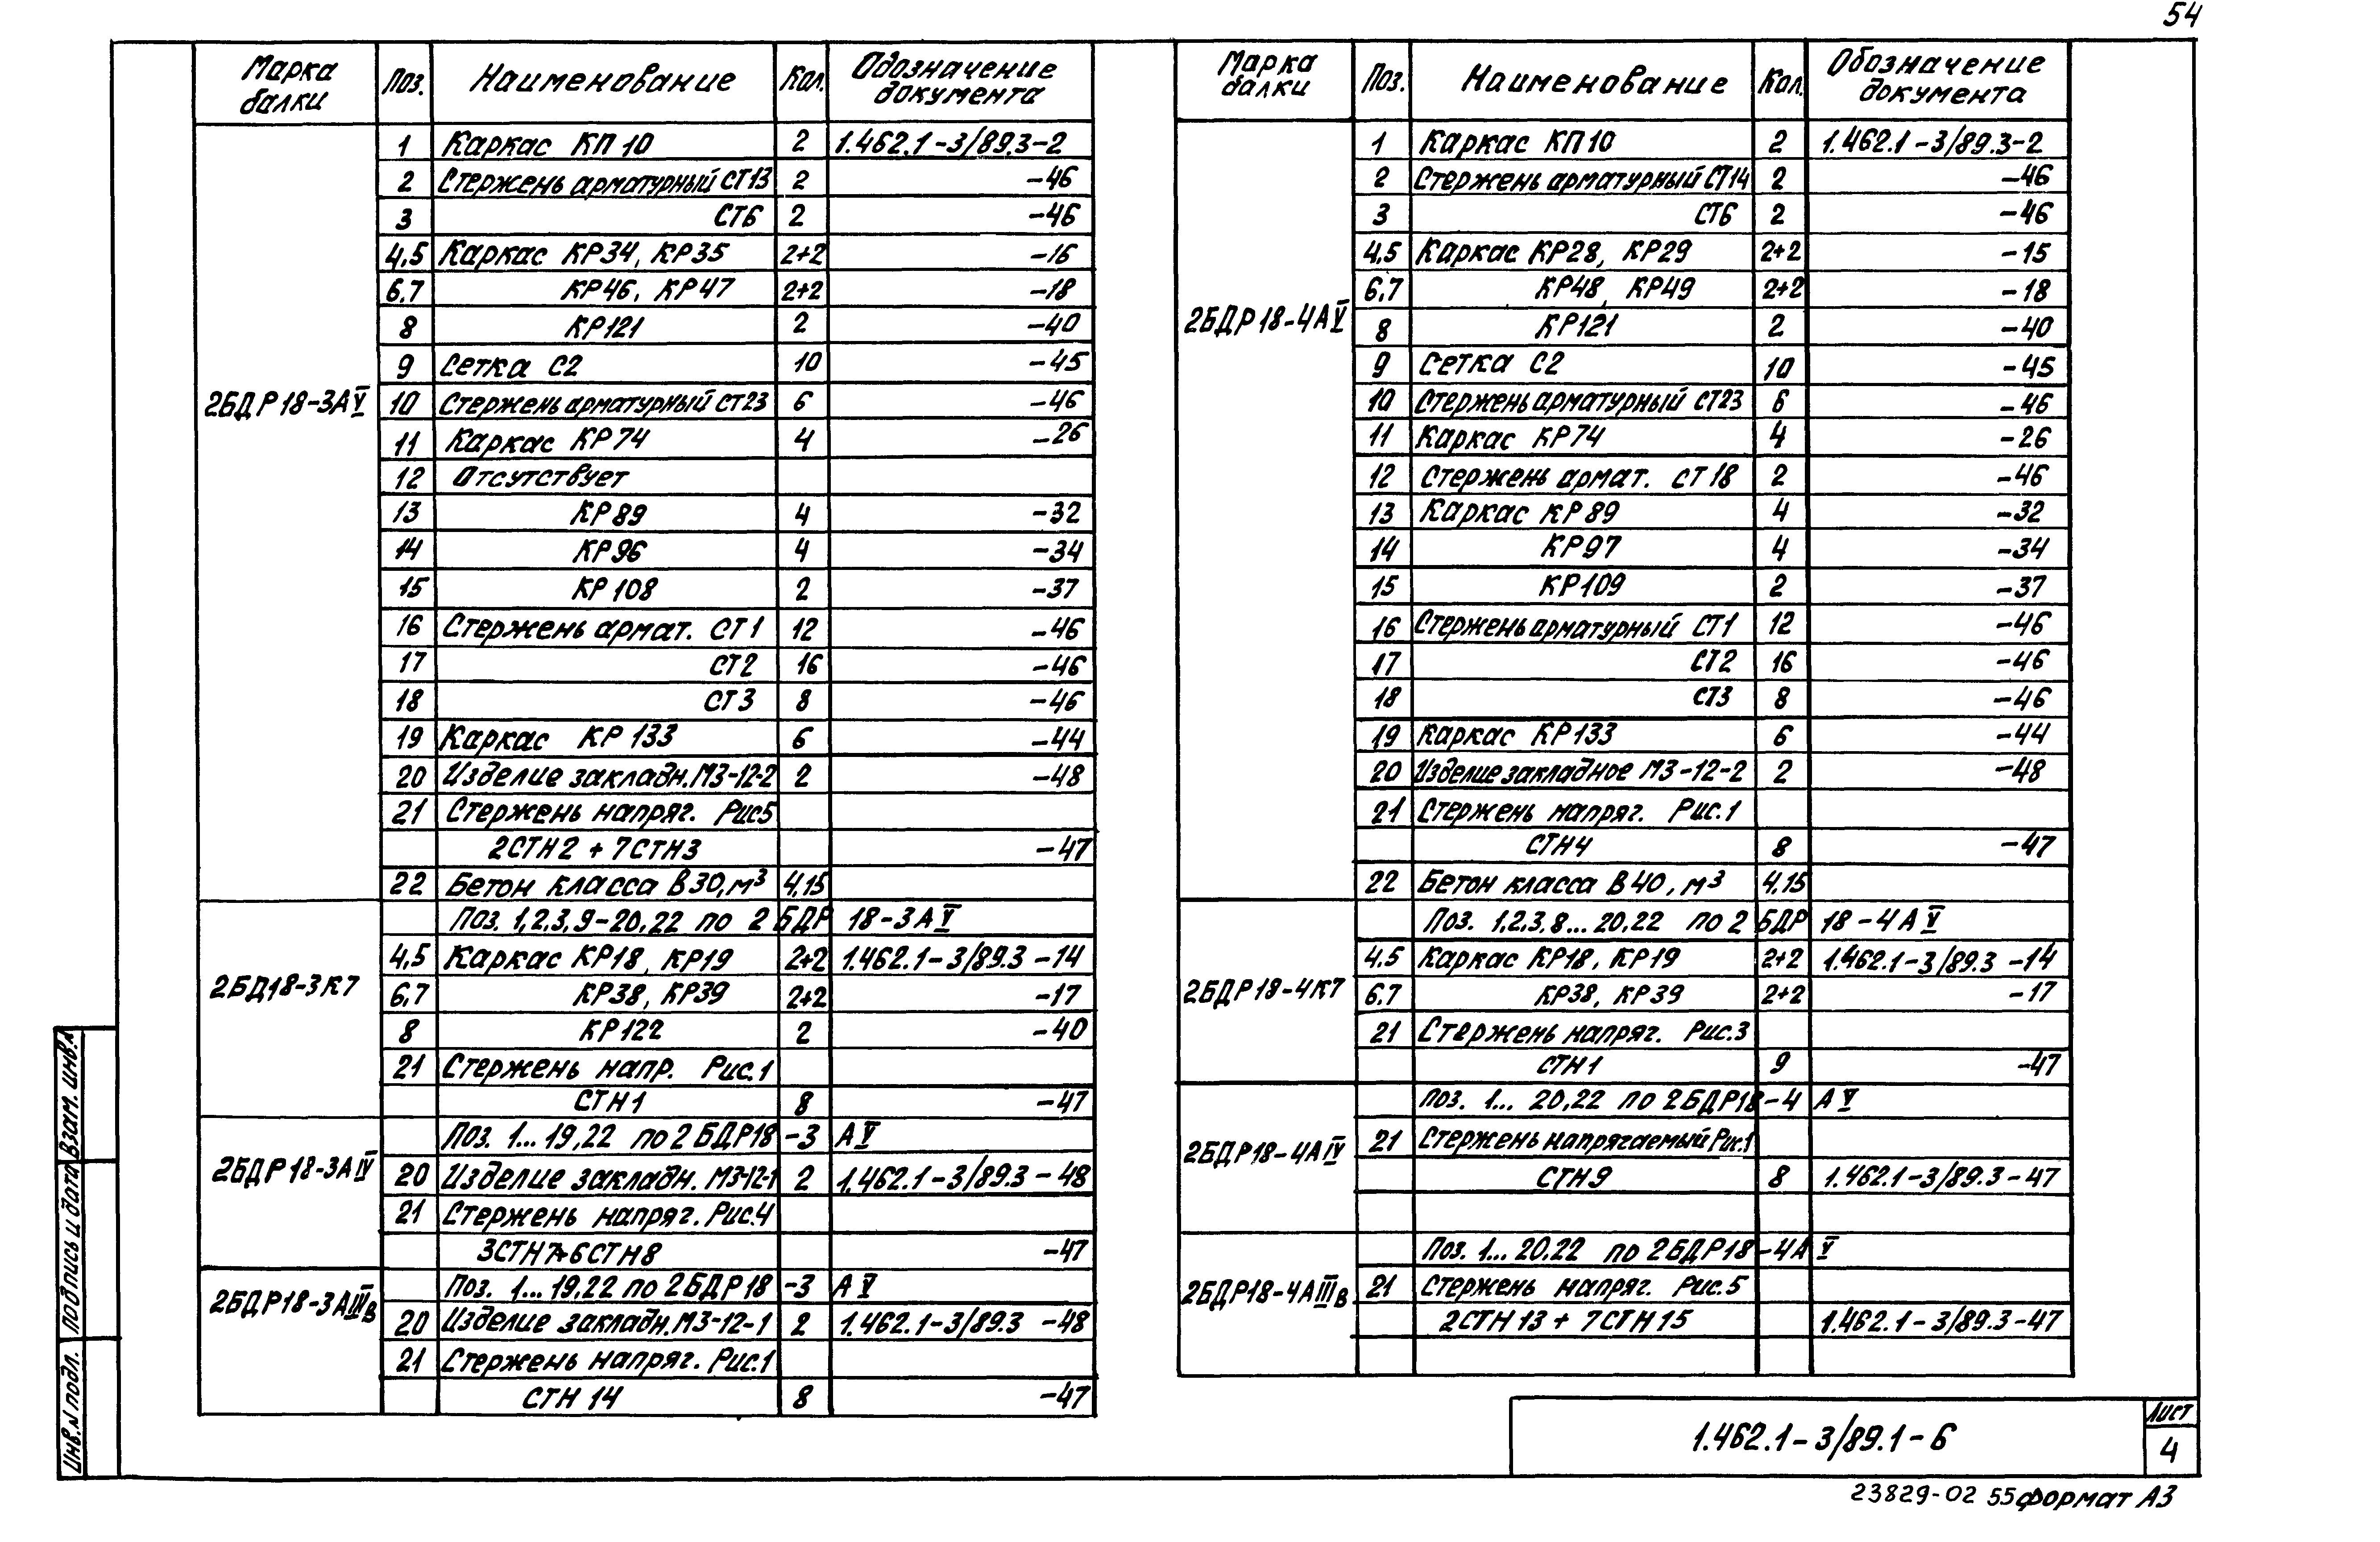 54
Марка балки Поз. Наименование Кол. Обозначение документа
2БДР18-3АV
1 Каркас КП10 2 1.462.1-3/89.3-2
2 Стержень арматурный СТ13 2 -46
3 СТ6 2 -46
4,5 Каркас КР34, КР35 2+2 -16
6,7 КР46, КР47 2+2 -18
8 КР121 2 -40
9 Сетка С2 10 -45
10 Стержень арматурный СТ23 6 -46
11 Каркас КР74 4 -26
12 Отсутствует
13 КР89 4 -32
14 КР96 4 -34
15 КР108 2 -37
16 Стержень армат. СТ1 12 -46
17 СТ2 16 -46
18 СТ3 8 -46
19 Каркас КР133 6 -44
20 Изделие закладн. МЗ-12-2 2 -48
21 Стержень напряг. Рис5
2СТН2 + 7СТН3 -47
22 Бетон класса В30, м³ 4,15
2БД18-3К7
Поз. 1,2,3,9-20,22 по 2БДР 18-3АV
4,5 Каркас КР18, КР19 2+2 1.462.1-3/89.3-14
6,7 КР38, КР39 2+2 -17
8 КР122 2 -40
21 Стержень напр. Рис.1
СТН1 8 -47
2БДР18-3АIV
Поз. 1...19,22 по 2БДР18-3 АV
20 Изделие закладн. МЗ-12-1 2 1.462.1-3/89.3-48
21 Стержень напряг. Рис.4
3СТН7+6СТН8 -47
2БДР18-3АIIIв
Поз. 1...19,22 по 2БДР18-3 АV
20 Изделие закладн. МЗ-12-1 2 1.462.1-3/89.3-48
21 Стержень напряг. Рис.1
СТН14 8 -47
Марка балки Поз. Наименование Кол. Обозначение документа
2БДР18-4АV
1 Каркас КП10 2 1.462.1-3/89.3-2
2 Стержень арматурный СТ14 2 -46
3 СТ6 2 -46
4,5 Каркас КР28, КР29 2+2 -15
6,7 КР48, КР49 2+2 -18
8 КР121 2 -40
9 Сетка С2 10 -45
10 Стержень арматурный СТ23 6 -46
11 Каркас КР74 4 -26
12 Стержень армат. СТ18 2 -46
13 Каркас КР89 4 -32
14 КР97 4 -34
15 КР109 2 -37
16 Стержень арматурный СТ1 12 -46
17 СТ2 16 -46
18 СТ3 8 -46
19 Каркас КР133 6 -44
20 Изделие закладное МЗ-12-2 2 -48
21 Стержень напряг. Рис.1
СТН4 8 -47
22 Бетон класса В40, м³ 4,15
2БДР18-4К7
Поз. 1,2,3,8...20,22 по 2БДР 18-4АV
4,5 Каркас КР18, КР19 2+2 1.462.1-3/89.3-14
6,7 КР38, КР39 2+2 -17
21 Стержень напряг. Рис.3
СТН1 9 -47
2БДР18-4АIV
Поз. 1...20,22 по 2БДР18-4 АV
21 Стержень напрягаемый Рис.1
СТН9 8 1.462.1-3/89.3-47
2БДР18-4АIIIв
Поз. 1...20,22 по 2БДР18-4АV
21 Стержень напряг. Рис.5
2СТН13 + 7СТН15 1.462.1-3/89.3-47
Инв.№ подл. Подпись и дата Взам. инв.№
1.462.1-3/89.1-6
Лист
4
23829-02 55 формат А3